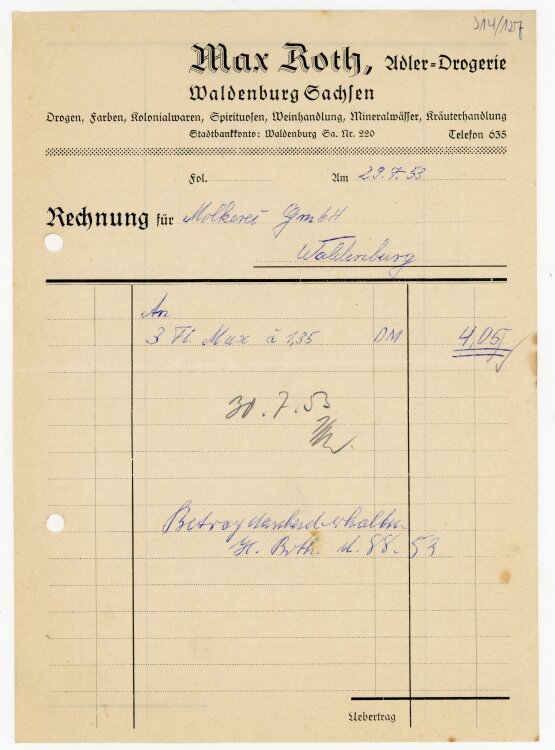 314/127
Max Roth, Adler-Drogerie
Waldenburg Sachsen
Drogen, Farben, Kolonialwaren, Spirituosen, Weinhandlung, Mineralwässer, Kräuterhandlung
Stadtbankkonto: Waldenburg Sa. Nr. 220 Telefon 635
Fol. Am 29.7.53
Rechnung für Molkerei GmbH
Waldenburg
An
3 Fl. Max à 1,35 DM 4,05
30.7.53
Betrag dankend erhalten
H. Roth. d. 8.8.53
Uebertrag